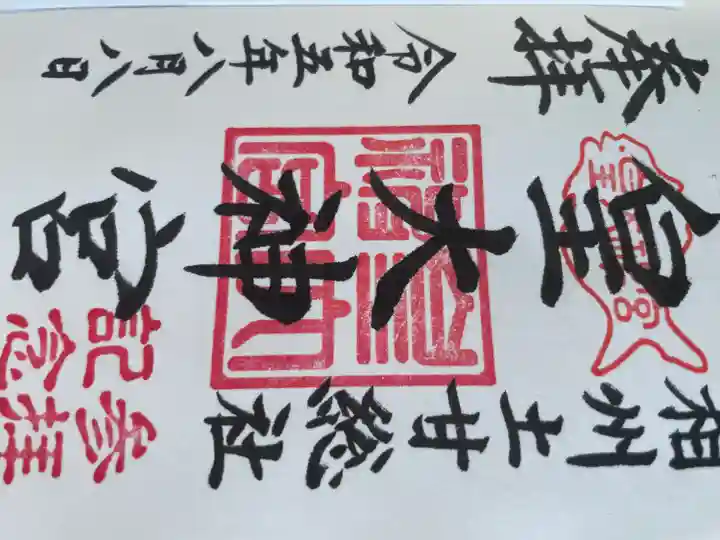 相州土甘総社
皇大神宮
奉拝 令和五年八月八日
参拝
記念